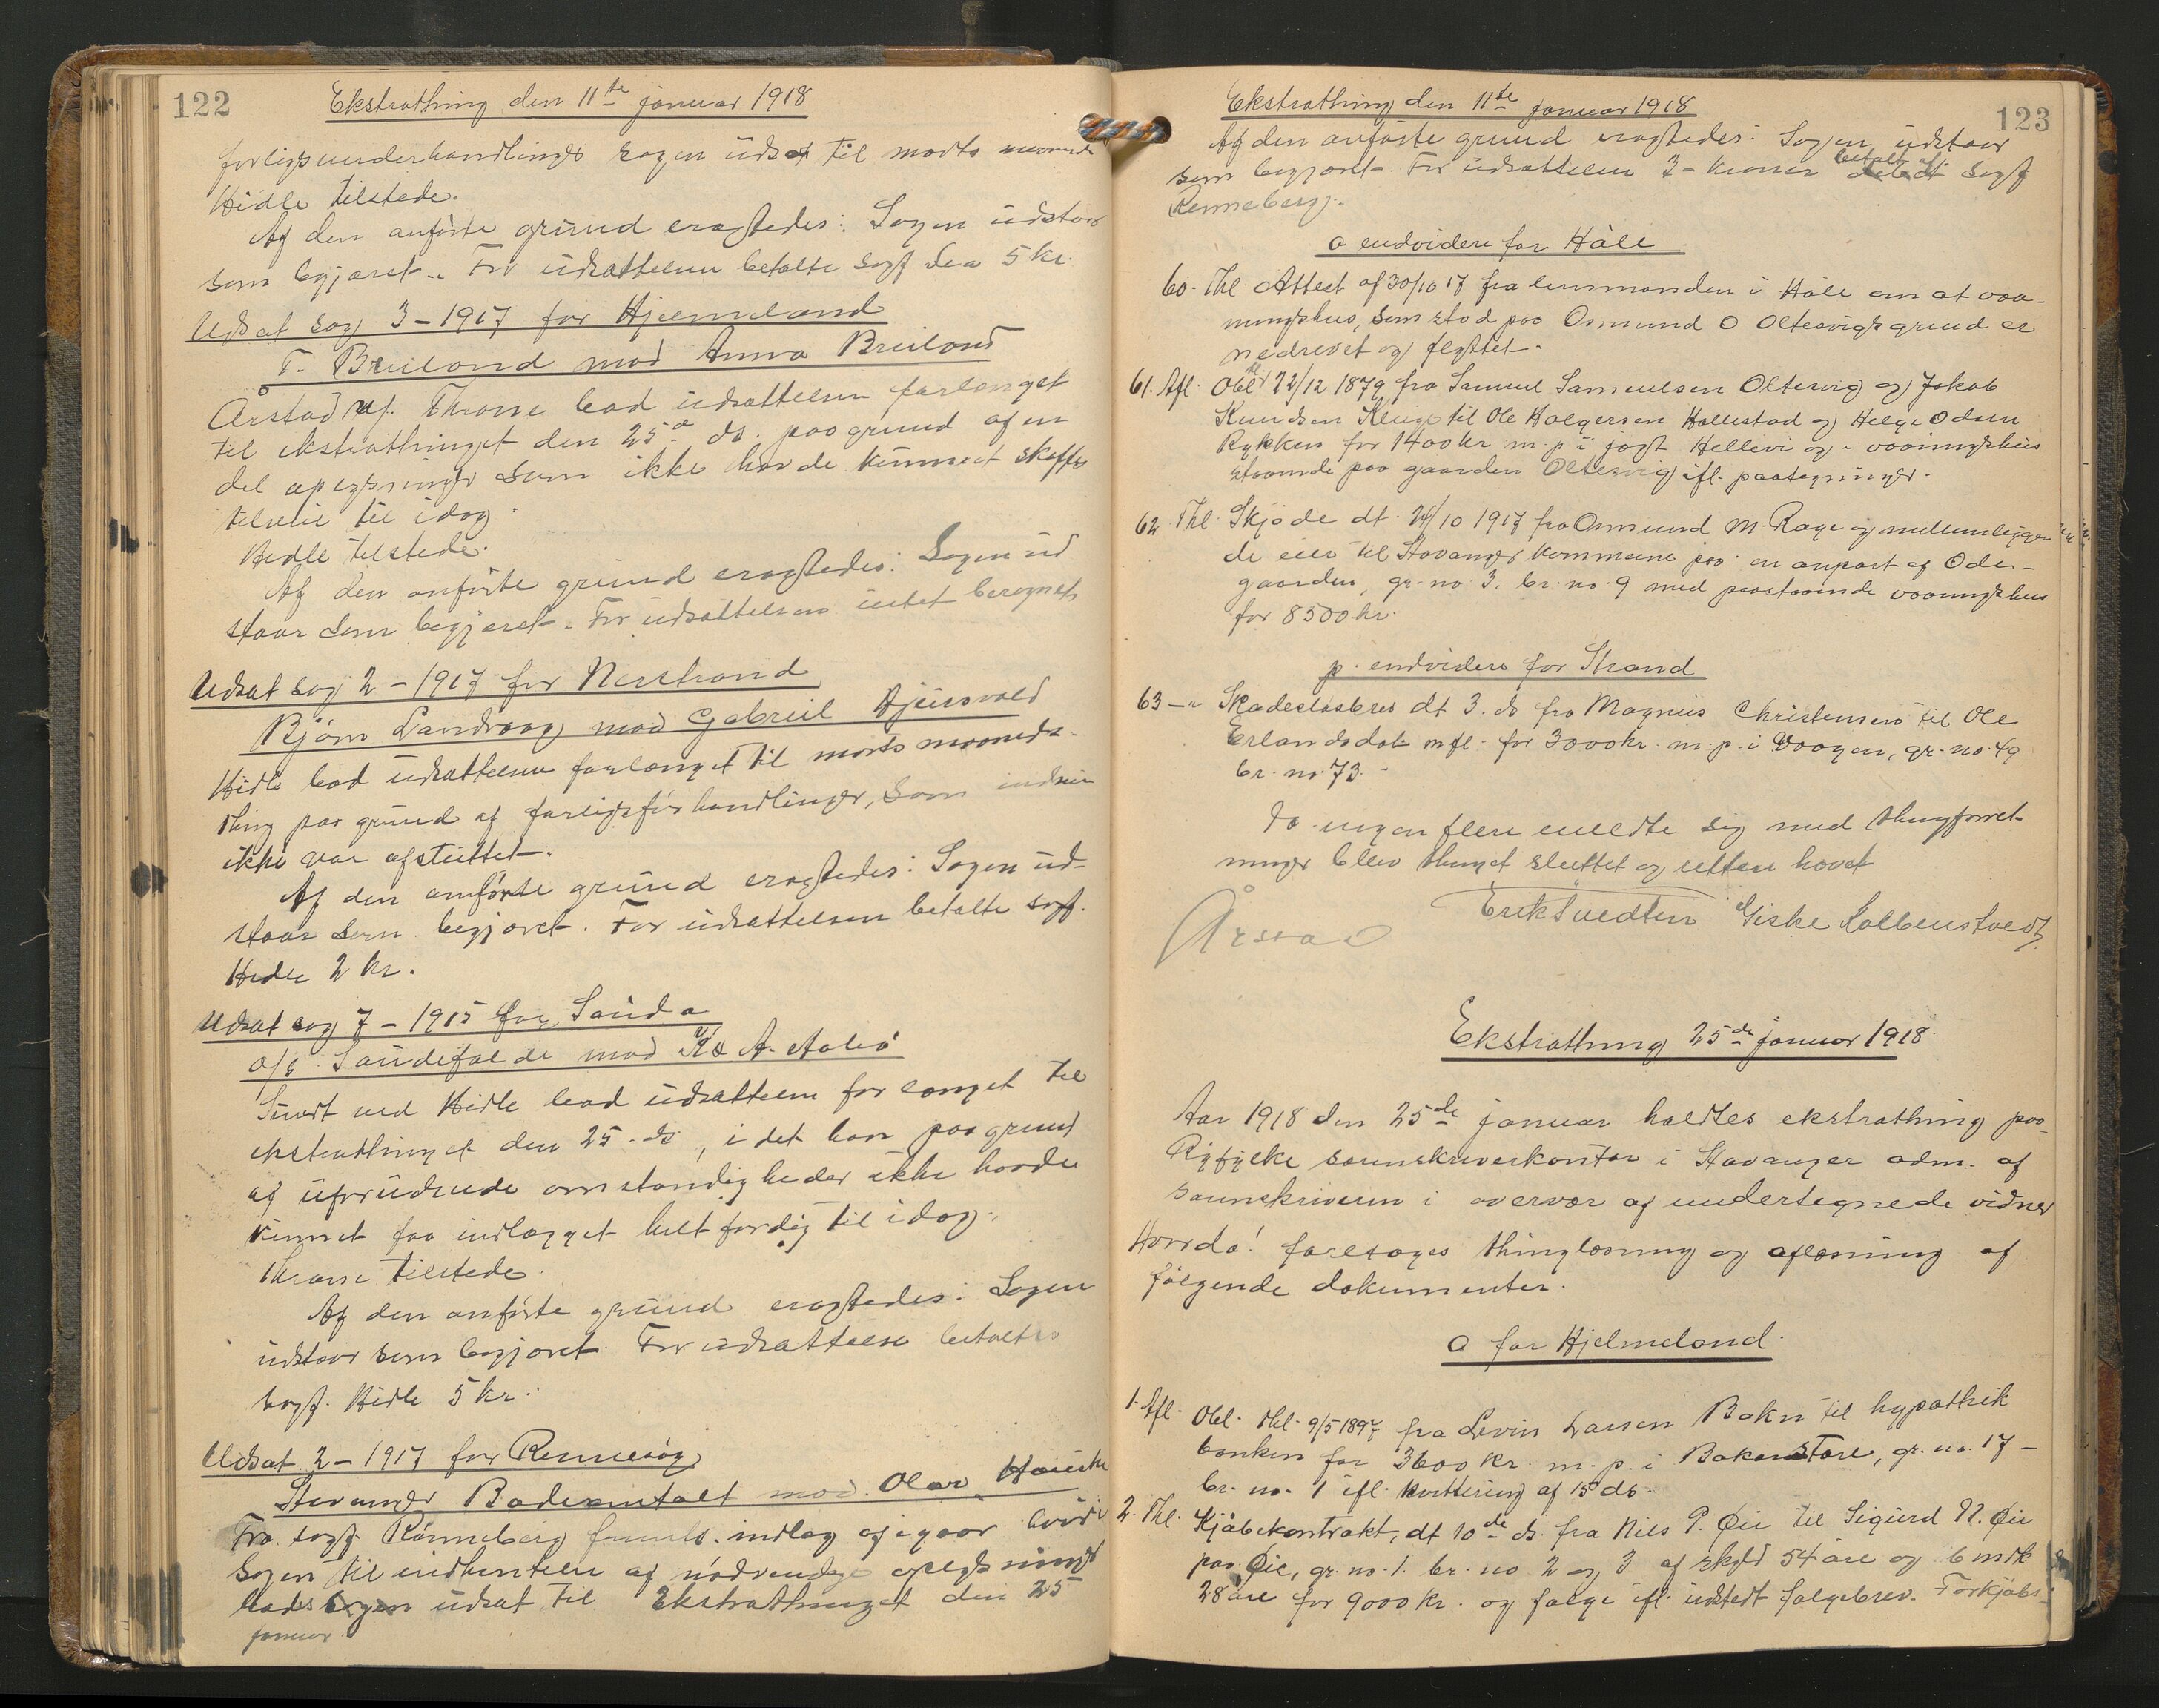 122
Ekstrathing den 11te januar 1918
forligsunderhandlinger sagen udsat til marts
Hidle tilstede.
Af den anførte grund eragtedes: Sagen udstaar
som begjæret. For udsættelsen betalte sagf 5 kr.
Udsat sag 3-1917 for Hjelmeland
T. Breiland mod Anna Breiland
Årstad Thrane bad udsættelsen forlænget
til ekstrathinget den 25de ds. paa grund af en
del oplysninger som ikke havde kunnet skaffes
tilveie til idag.
Hidle tilstede.
Af den anførte grund eragtedes: Sagen ud
staar som begjæret. For udsættelsen intet beregnet
Udsat sag 2-1917 for Nerstrand
Bjørn Sandvaag mod Gabriel
Hidle bad udsættelsen forlænget til marts maaneds-
thing paa grund af forligsforhandlinger, som endnu
ikke var afsluttet.
Af den anførte grund eragtedes: Sagen ud-
staar som begjæret. For udsættelsen betalte sagf.
Hidle 2 kr.
Udsat sag 7-1915 for Sauda
a/s Saudefalde mod A.
ved Hidle bad udsættelsen forlænget til
ekstrathinget den 25-ds, i det han paa grund
af uforudsede omstændigheder ikke havde
kunnet faa indlægget helt færdig til idag.
Thrane tilstede.
Af den anførte grund eragtedes: Sagen
udstaar som begjæret. For udsættelsen betaltes
sagf. Hidle 5 kr.
Udsat 2-1917 for Rennesøy
Stavanger Badeanstalt mod Olav
Fra sagf. Rønneberg indlæg af igaar
Sagen til indhentelse af nødvendige oplysninger
bades udsat til Ekstrathinget den 25
januar.
123
Ekstrathing den 11te januar 1918
Af den anførte grund eragtedes: Sagen udstaar
som begjæret. For udsættelsen 3-kroner betalt af sagf
Rønneberg.
o endvidere for Håle
60. Thl Attest af 30/10 17 fra lensmanden i Håle om at vaa-
ningshus, som stod paa Osmund O Oltesvigs grund er
nedrevet og flyttet.
61. Afl. Obl thl 22/12 1879 fra Samuel Samuelsen Oltesvig og Jakob
Knudsen til Ole Holgersen Hallestad og Helge Odsen
Rykken for 1400 kr m.p. i jagt Hellevi og vaaningshus
staaende paa gaarden Oltesvig ifl. paategninger.
62. Thl. Skjøde dt. 24/10 1917 fra Osmund M. Rage og mellemliggen
de eier til Stavanger kommune paa en anpart af Ode-
gaarden, gr. no. 3. br. no. 9 med paastaaende vaaningshus
for 8500 kr.
p. endvidere for Strand
63 - " Skadesløsbrev dt 3. ds fra Magnus Christensen til Ole
Erlandsdal m fl. for 3000 kr. m. p. i Vaagen, gr. no. 49
br. no. 73.
Da ingen flere meldte sig med thingforret-
ninger blev thinget sluttet og retten hævet
Årstad Erik Tuedten Giske Kolbenstvedt
Ekstrathing 25de januar 1918
Aar 1918 den 25de januar holdtes ekstrathing paa
Ryfylke sorenskriverkontor i Stavanger adm. af
sorenskriveren i overvær af undertegnede vidner
Hvorda! foretoges thinglæsning og aflæsning af
følgende dokumenter.
a for Hjelmeland.
1. Afl. Obl. thl. 9/5 1897 fra Levin Larsen Bakn til hypothek
banken for 3600 kr. m. p. i, gr. no. 17 -
br. no. 1 ifl. kvittering af 15 ds.
2. Thl. Kjøbekontrakt, dt 10de ds. fra Nils P. Øie til Sigurd N. Øie
paa Øie, gr. no. 1. br. no 2 og 3 af skyld 54 øre og 6 mrk
28 øre for 9000 kr. og følge ifl. udstedt følgebrev. Forkjøbs-